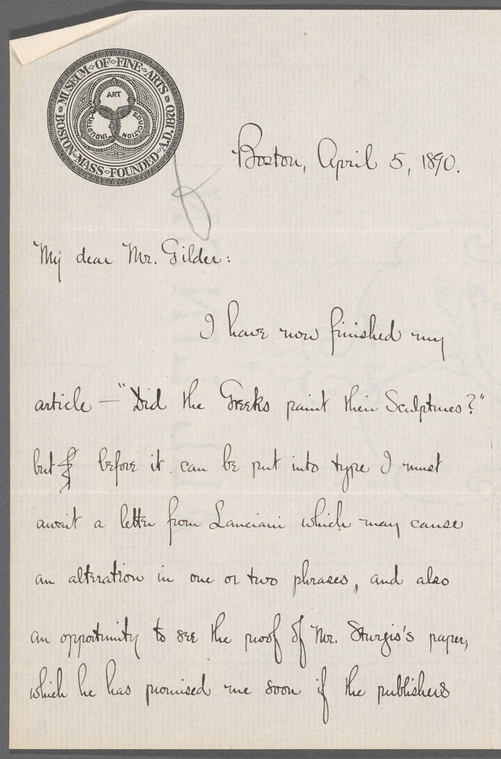 MUSEUM OF FINE ARTS
BOSTON·MASS·FOUNDED·A.D. 1870
ART
INDUSTRY
EDUCATION
Boston, April 5, 1890.
My dear Mr. Gilder:
I have now finished my
article — "Did the Greeks paint their Sculptures?"
but before it can be put into type I must
await a letter from Lanciani which may cause
an alteration in one or two phrases, and also
an opportunity to see the proof of Mr. Sturgis's paper,
which he has promised me soon if the publishers